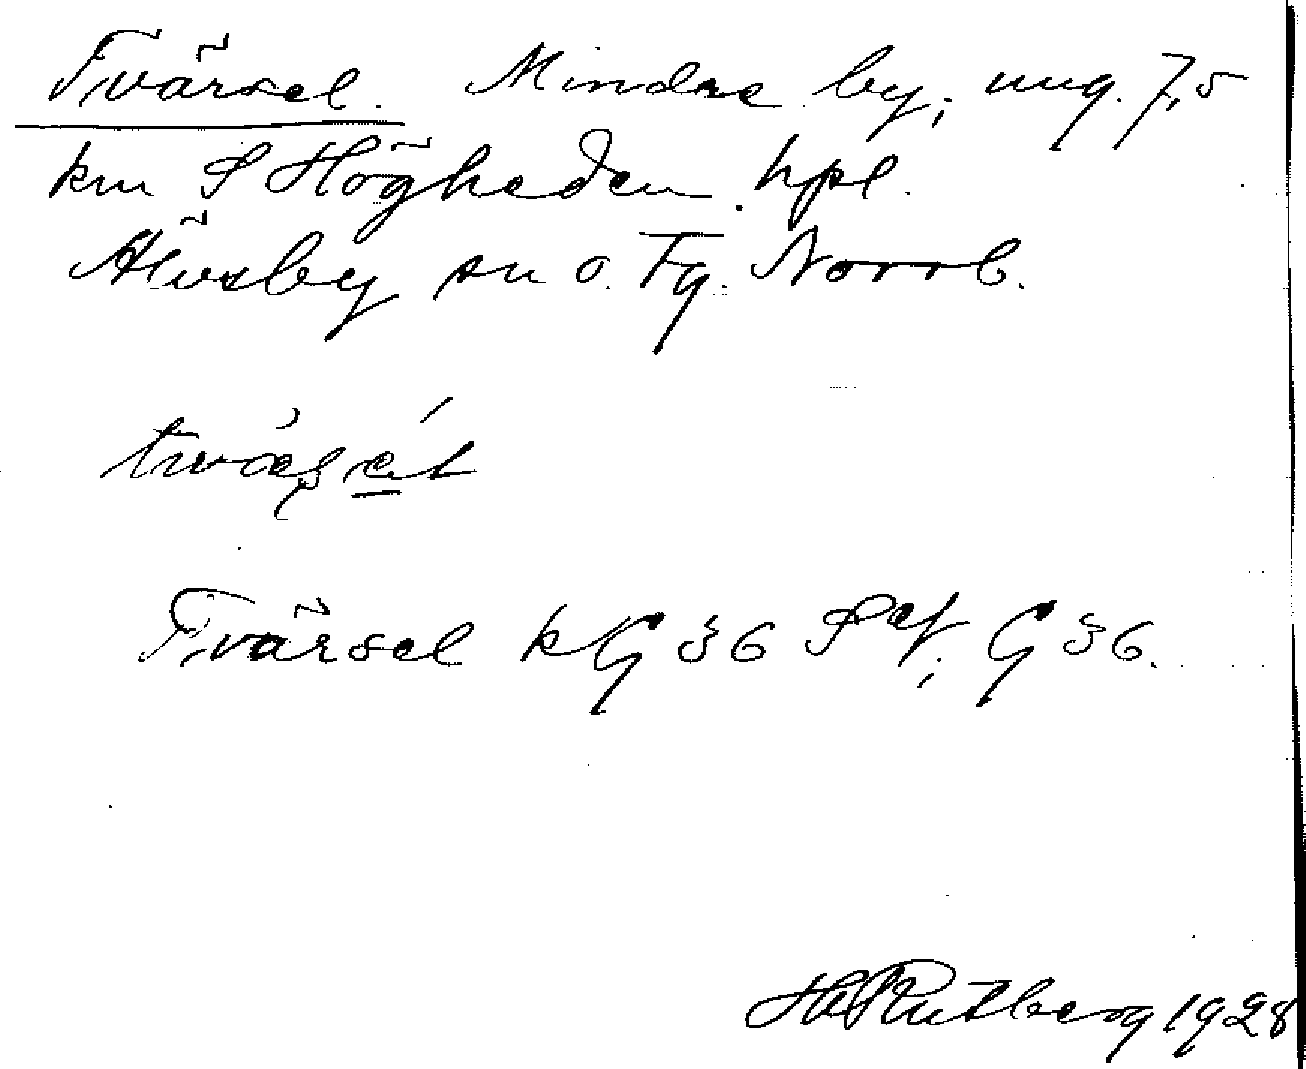 Tvärsel. Mindre by, ung. 7,5
km S Högheden hpl.
Älvsby sn o. Tg. Norrb.
Tvärsel k G 36 S ef, G 36.
H Rutberg 1928